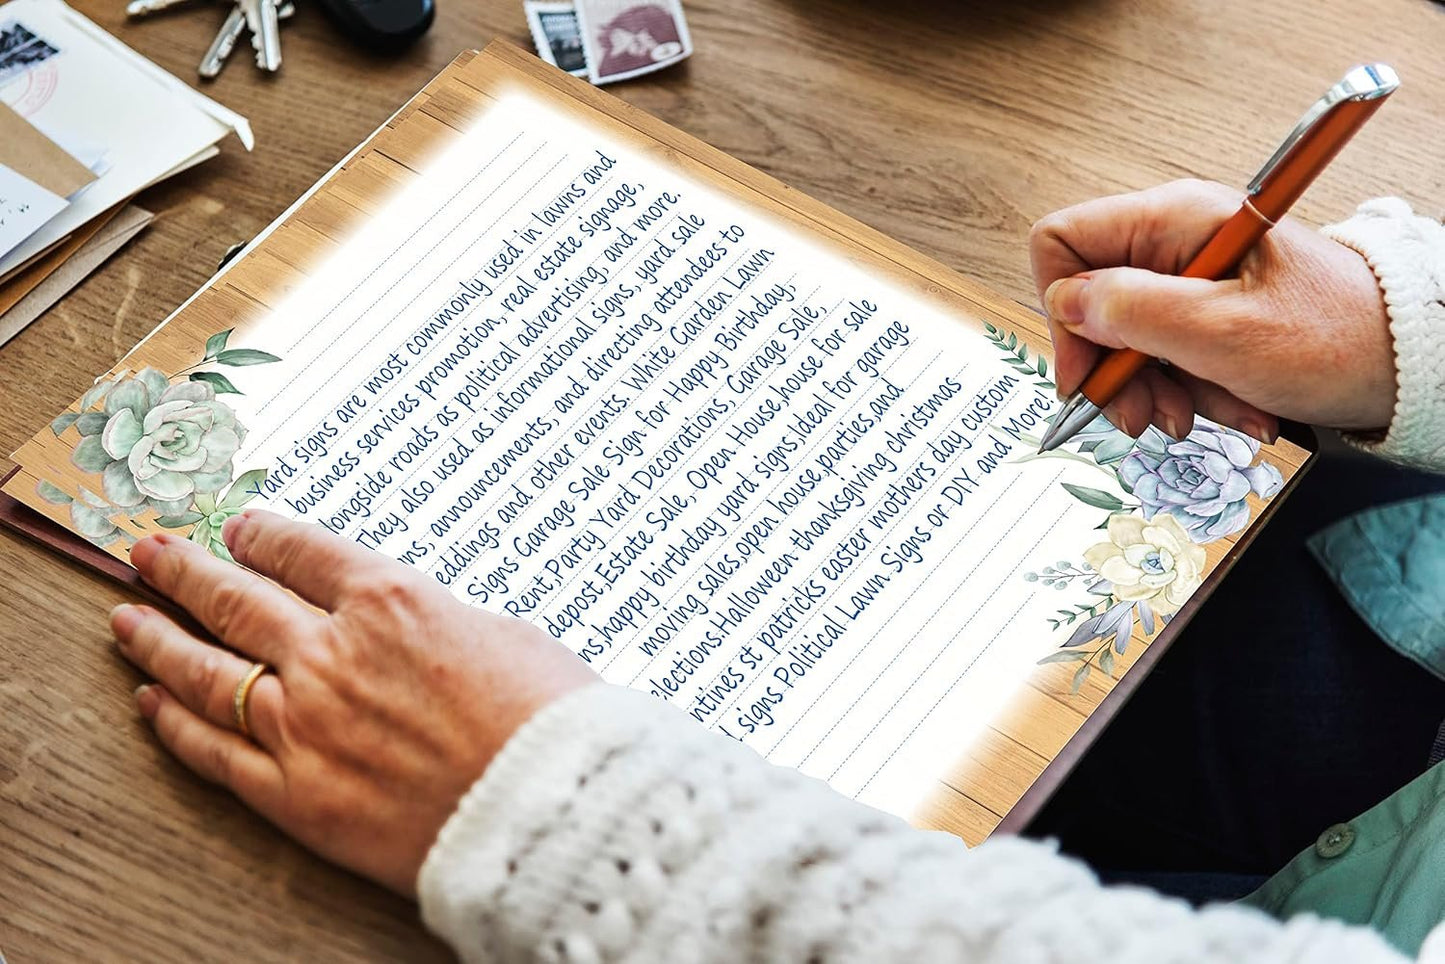 Yard signs are most commonly used in lawns and
business services promotion, real estate signage,
longside roads as political advertising, and more.
They also used as informational signs, yard sale
ns, announcements, and directing attendees to
eddings and other events. White Garden Lawn
Signs Garage Sale Sign for Happy Birthday,
Rent,Party Yard Decorations, Garage Sale,
depost,Estate Sale, Open House,house for sale
ns,happy birthday yard signs,Ideal for garage
moving sales,open house,parties,and
elections.Halloween thanksgiving christmas
ntines st patricks easter mothers day custom
l signs Political Lawn Signs or DIY and More!